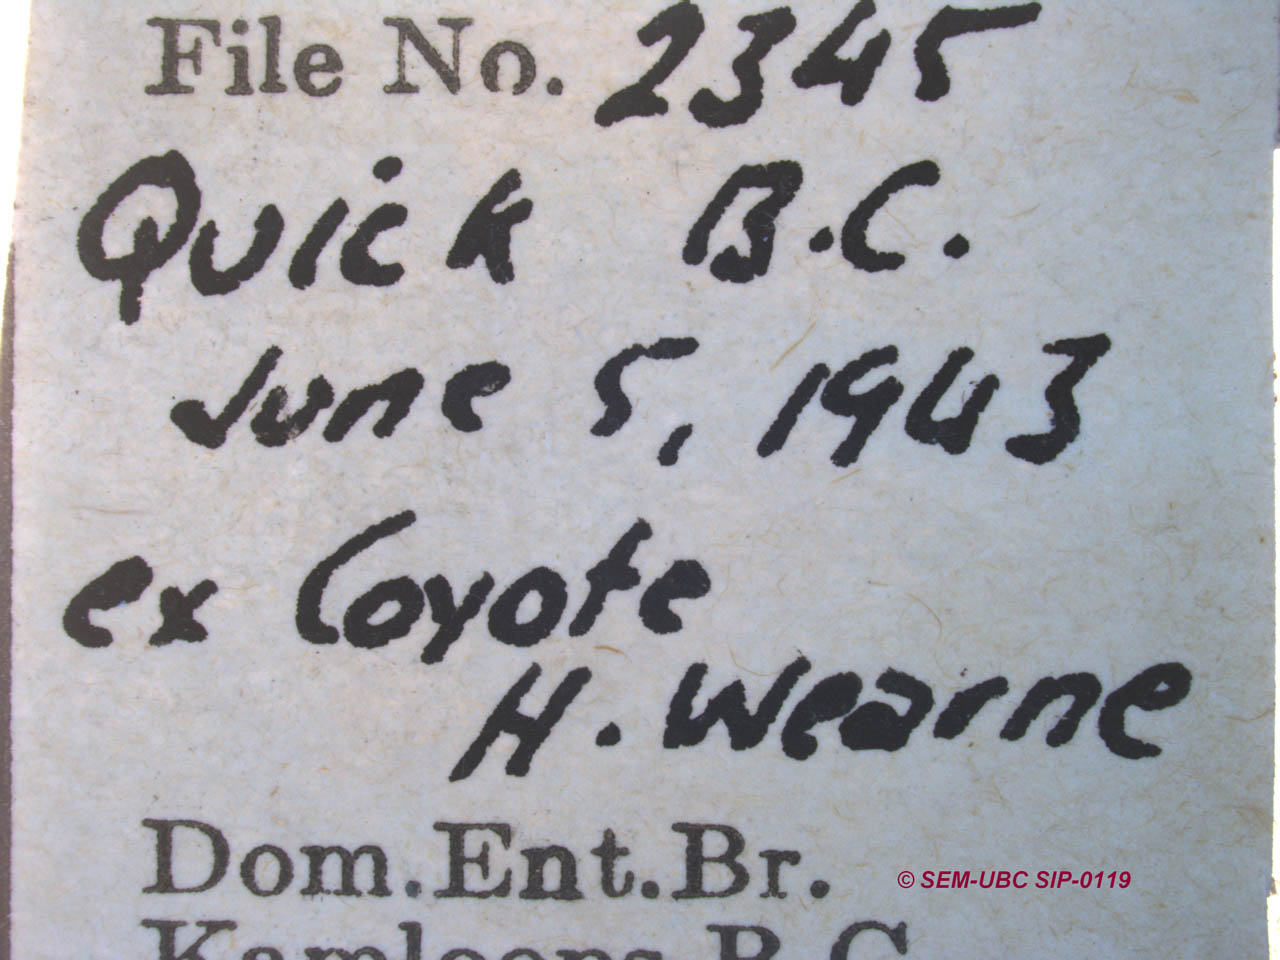 File No. 2345
Quick B.C.
June 5, 1943
ex Coyote
H. Wearne
Dom.Ent.Br.
© SEM-UBC SIP-0119
Kamloops B.C.